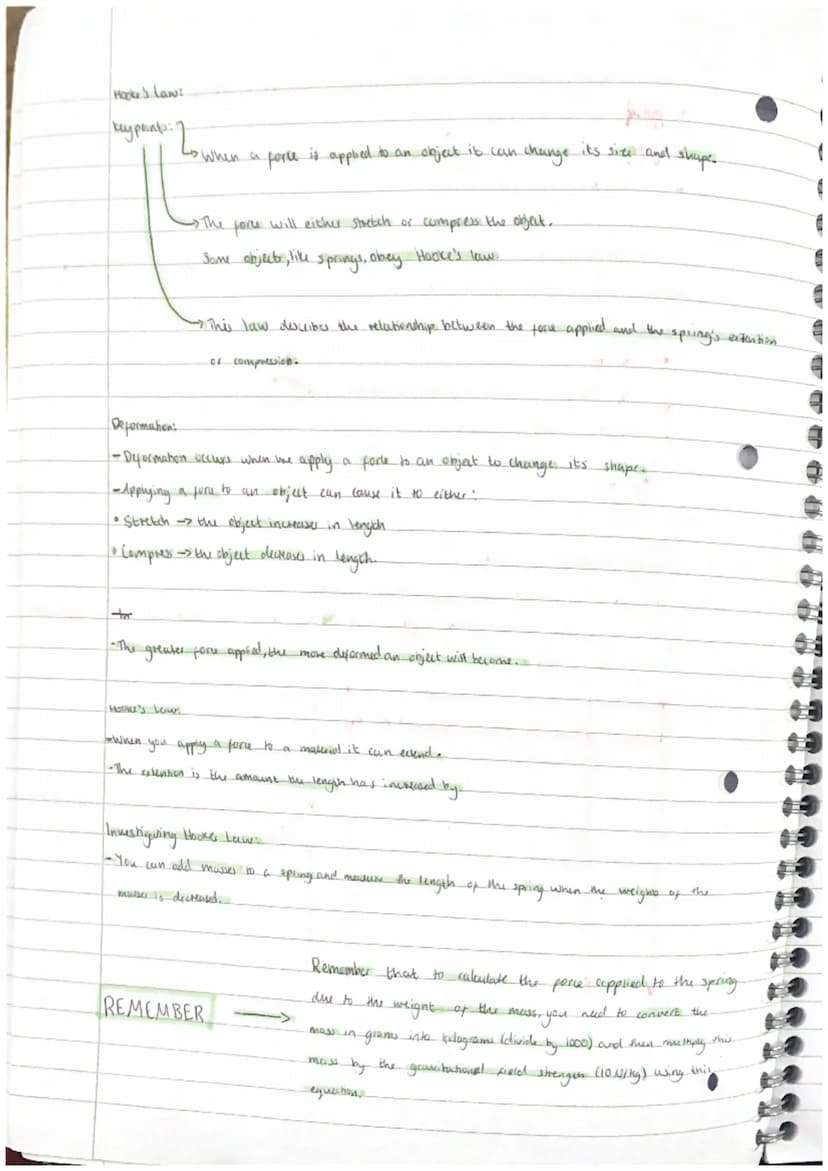 Hooke's Law:
Key points:
When a force is applied to an object it can change its size and shape.
The force will either stretch or compress the object.
Some objects, like springs, obey Hooke's law.
This law describes the relationship between the force applied and the spring's extention
or compression.
Deformation:
- Deformation occurs when we apply a force to an object to change its shape.
- Applying a force to an object can cause it to either:
• Stretch -> the object increases in length
• Compress -> the object decreases in length.
- The greater force applied, the more deformed an object will become.
Hooke's Law:
- When you apply a force to a material it can extend.
- The extention is the amount the length has increased by.
Investiguing Hookes Law:
- You can add masses to a spring and measure the length of the spring when the weights of the
masses is decreased.
Remember that to calculate the force applied to the spring
REMEMBER → due to the weight of the mass, you need to convert the
mass in grams into kilograms (divide by 1000) and then multiply this
mass by the gravitational field strength (10 N/kg) using this
equation.